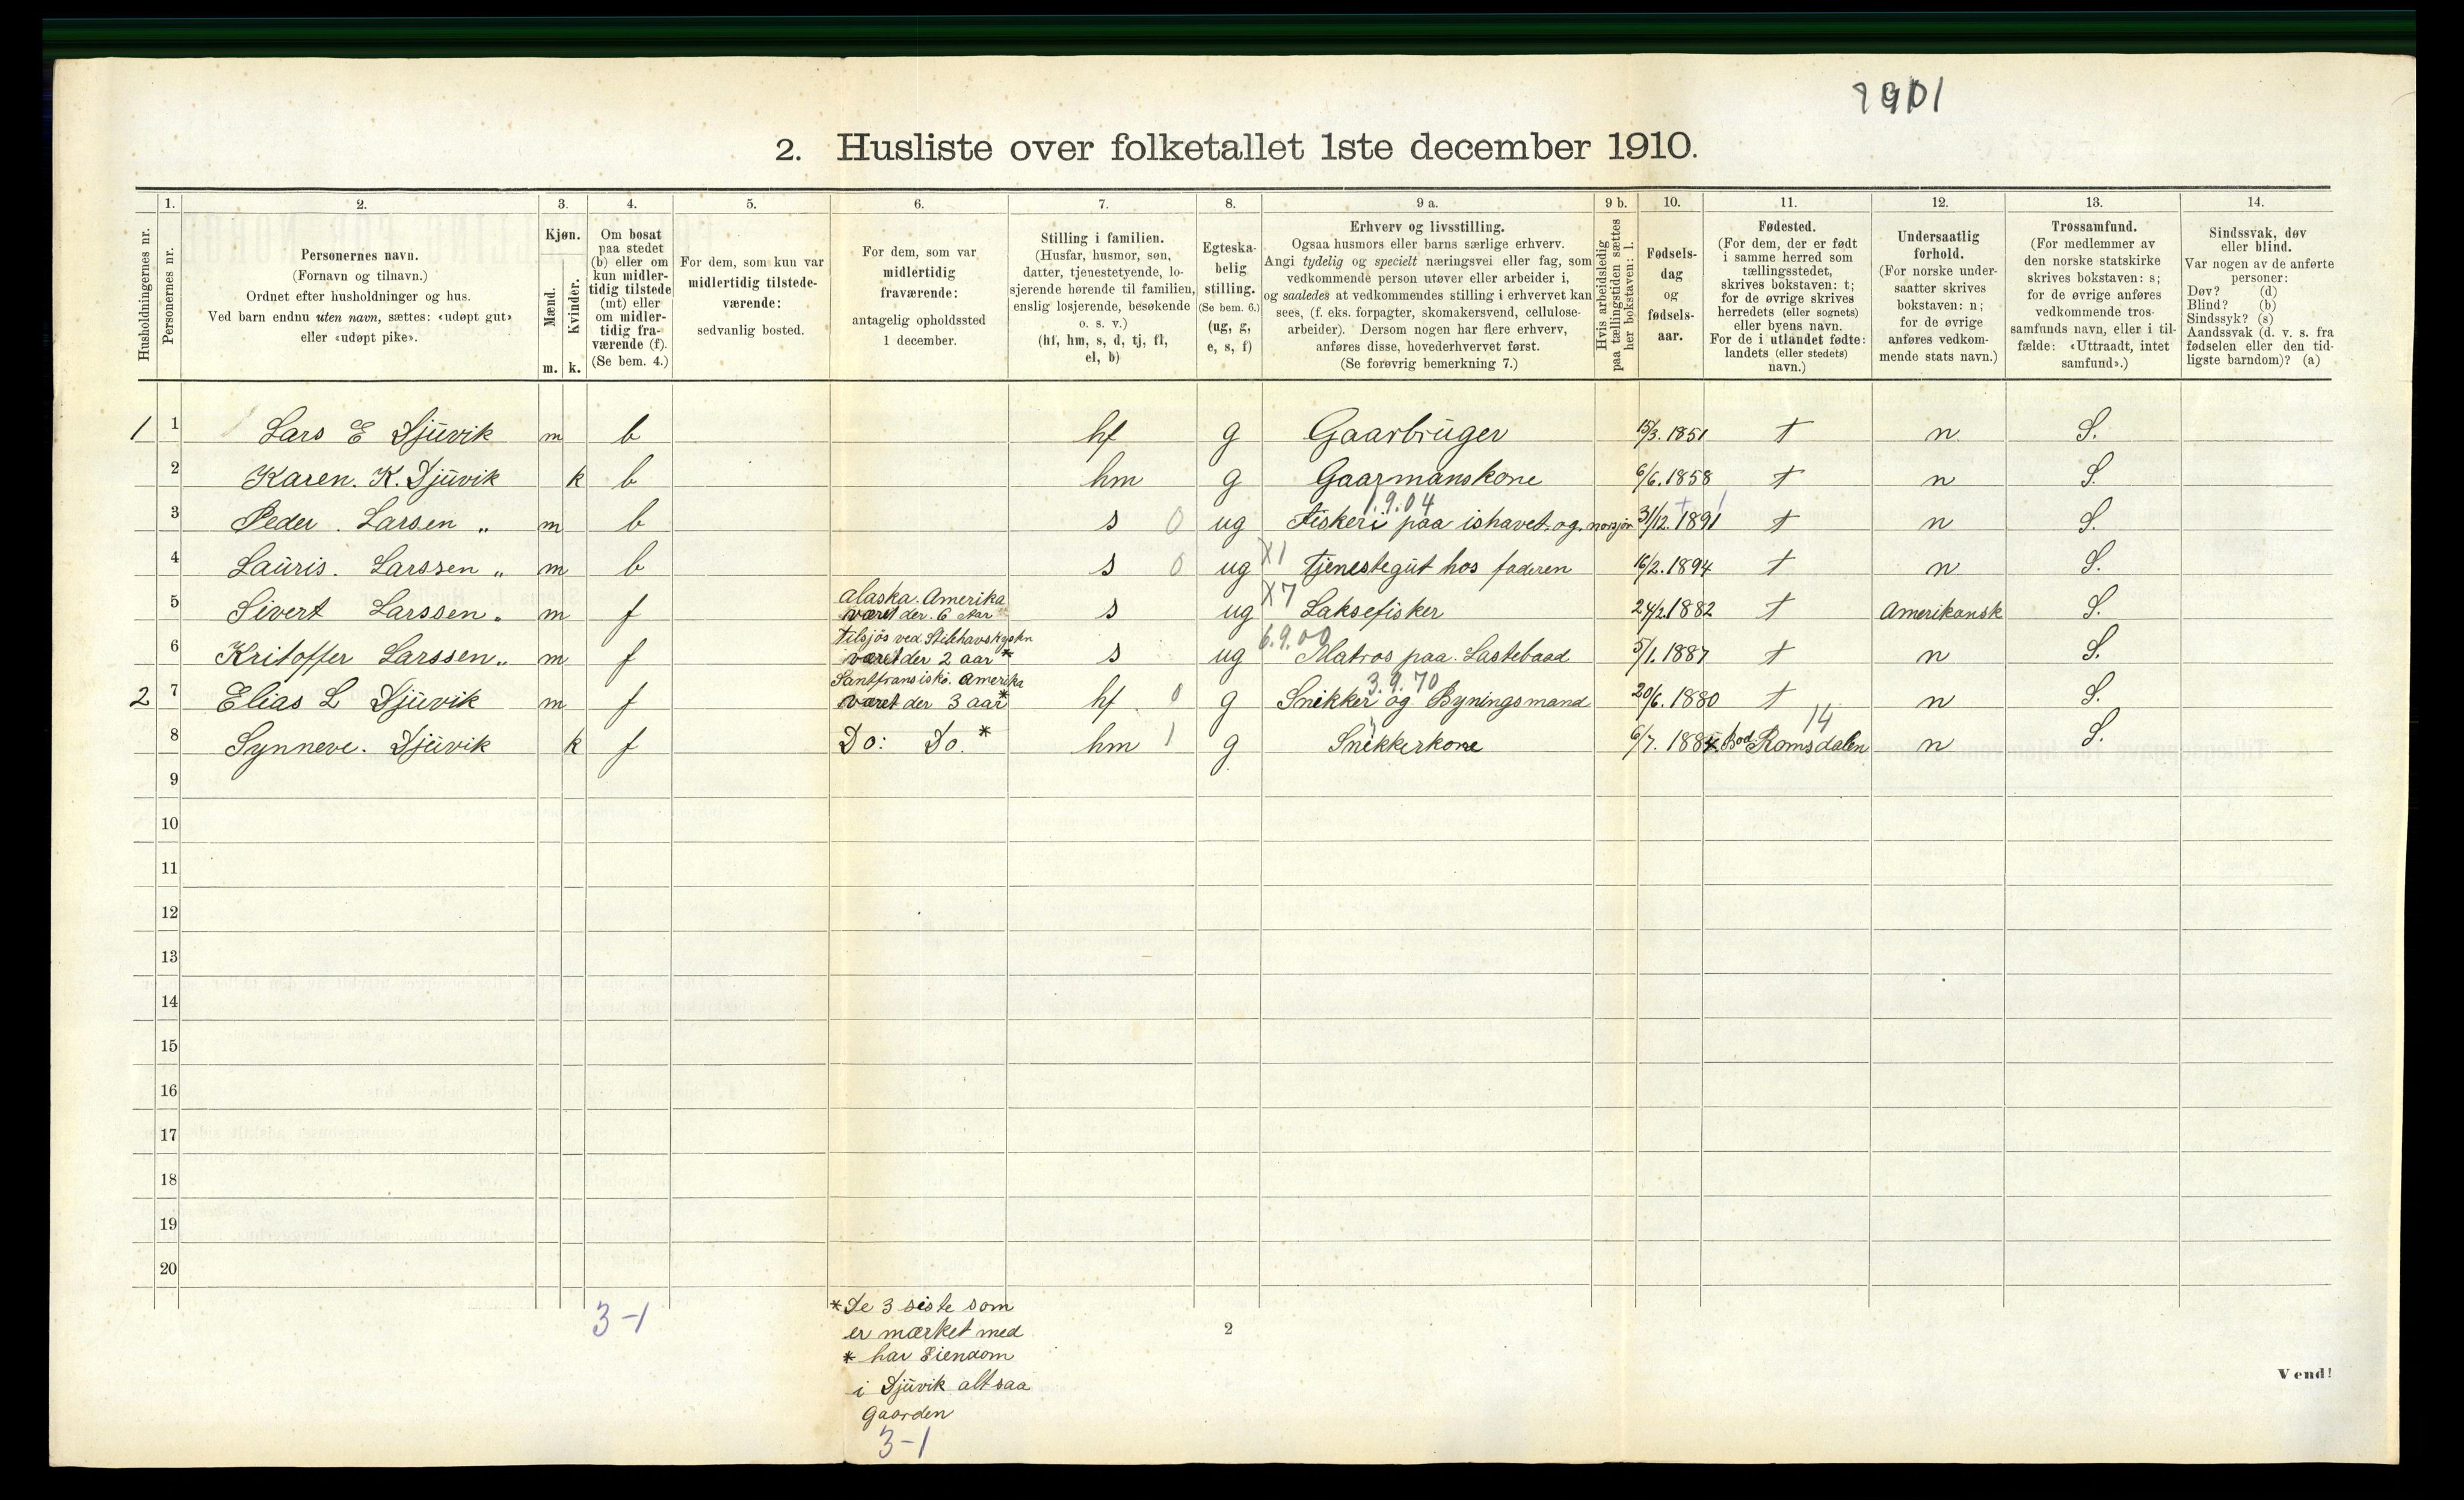 2. Husliste over folketallet 1ste december 1910.
Husholdningernes nr.
1.
Personernes nr.
2.
Personernes navn.
(Fornavn og tilnavn.)
Ordnet efter husholdninger og hus.
Ved barn endnu uten navn, sættes: «udøpt gut»
eller «udøpt pike».
3.
Kjøn.
Mænd.
Kvinder.
m. k.
4.
Om bosat
paa stedet
(b) eller om
kun midler-
tidig tilstede
(mt) eller
om midler-
tidig fra-
værende (f).
(Se bem. 4.)
5.
For dem, som kun var
midlertidig tilstede-
værende:
sedvanlig bosted.
6.
For dem, som var
midlertidig
fraværende:
antagelig opholdssted
1 december.
7.
Stilling i familien.
(Husfar, husmor, søn,
datter, tjenestetyende, lo-
sjerende hørende til familien,
enslig losjerende, besøkende
o. s. v.)
(hf, hm, s, d, tj, fl,
el, b)
8.
Egteska-
belig
stilling.
(Se bem. 6.)
(ug, g,
e, s, f)
9 a.
Erhverv og livsstilling.
Ogsaa husmors eller barns særlige erhverv.
Angi tydelig og specielt næringsvei eller fag, som
vedkommende person utøver eller arbeider i,
og saaledes at vedkommendes stilling i erhvervet kan
sees, (f. eks. forpagter, skomakersvend, cellulose-
arbeider). Dersom nogen har flere erhverv,
anføres disse, hovederhvervet først.
(Se forøvrig bemerkning 7.)
9 b.
Hvis arbeidsledig
paa tællingstiden sættes
her bokstaven: l.
10.
Fødsels-
dag
og
fødsels-
aar.
11.
Fødested.
(For dem, der er født
i samme herred som
tællingsstedet,
skrives bokstaven: t;
for de øvrige skrives
herredets (eller sognets)
eller byens navn.
For de i utlandet fødte:
landets (eller stedets)
navn.)
12.
Undersaatlig
forhold.
(For norske under-
saatter skrives
bokstaven: n;
for de øvrige
anføres vedkom-
mende stats navn.)
13.
Trossamfund.
(For medlemmer av
den norske statskirke
skrives bokstaven: s;
for de øvrige anføres
vedkommende tros-
samfunds navn, eller i til-
fælde: «Uttraadt, intet
samfund».)
14.
Sindssvak, døv
eller blind.
Var nogen av de anførte
personer:
Døv? (d)
Blind? (b)
Sindssyk? (s)
Aandssvak (d. v. s. fra
fødselen eller den tid-
ligste barndom)? (a)
1 1 Lars E Djuvik m b hf g Gaarbruger 15/3. 1851 t n S.
2 Karen. K. Djuvik k b hm g Gaarmanskone 6/6. 1858 t n S.
1.9.04
3 Peder. Larsen „ m b s 0 ug Fiskeri paa ishavet. og. norsjøn 31/12. 1891 t n S.
4 Lauris. Larssen „ m b s 0 ug X1 Tjenestegut hos faderen 16/2. 1894 t n S.
alaska. Amerika
5 Sivert Larssen „ m f været der. 6 Aar s ug X7 Laksefisker 24/2. 1882 t Amerikansk S.
Tilsjøs ved Stilehavskysten 6.9.00
6 Kritoffer Larssen „ m f været der 2 aar * s ug Matros paa. Lastebaad 5/1. 1887 t n S.
Santfransisko. Amerika 3.9.70
2 7 Elias L Djuvik m f været der 3 aar * hf. 0 g Snikker og Byningsmand 20/6. 1880 t n S.
14
8 Synneve. Djuvik k f Do: Do. * hm 1 g Snikkerkone 6/7. 1884 Bod Romsdalen n S.
9
10
11
12
13
14
15
16
17
18
19
20
3-1
* De 3 siste som
er mærket med
* har Eiendom
i Djuvik altsaa
Gaarden
3-1
2
Vend!